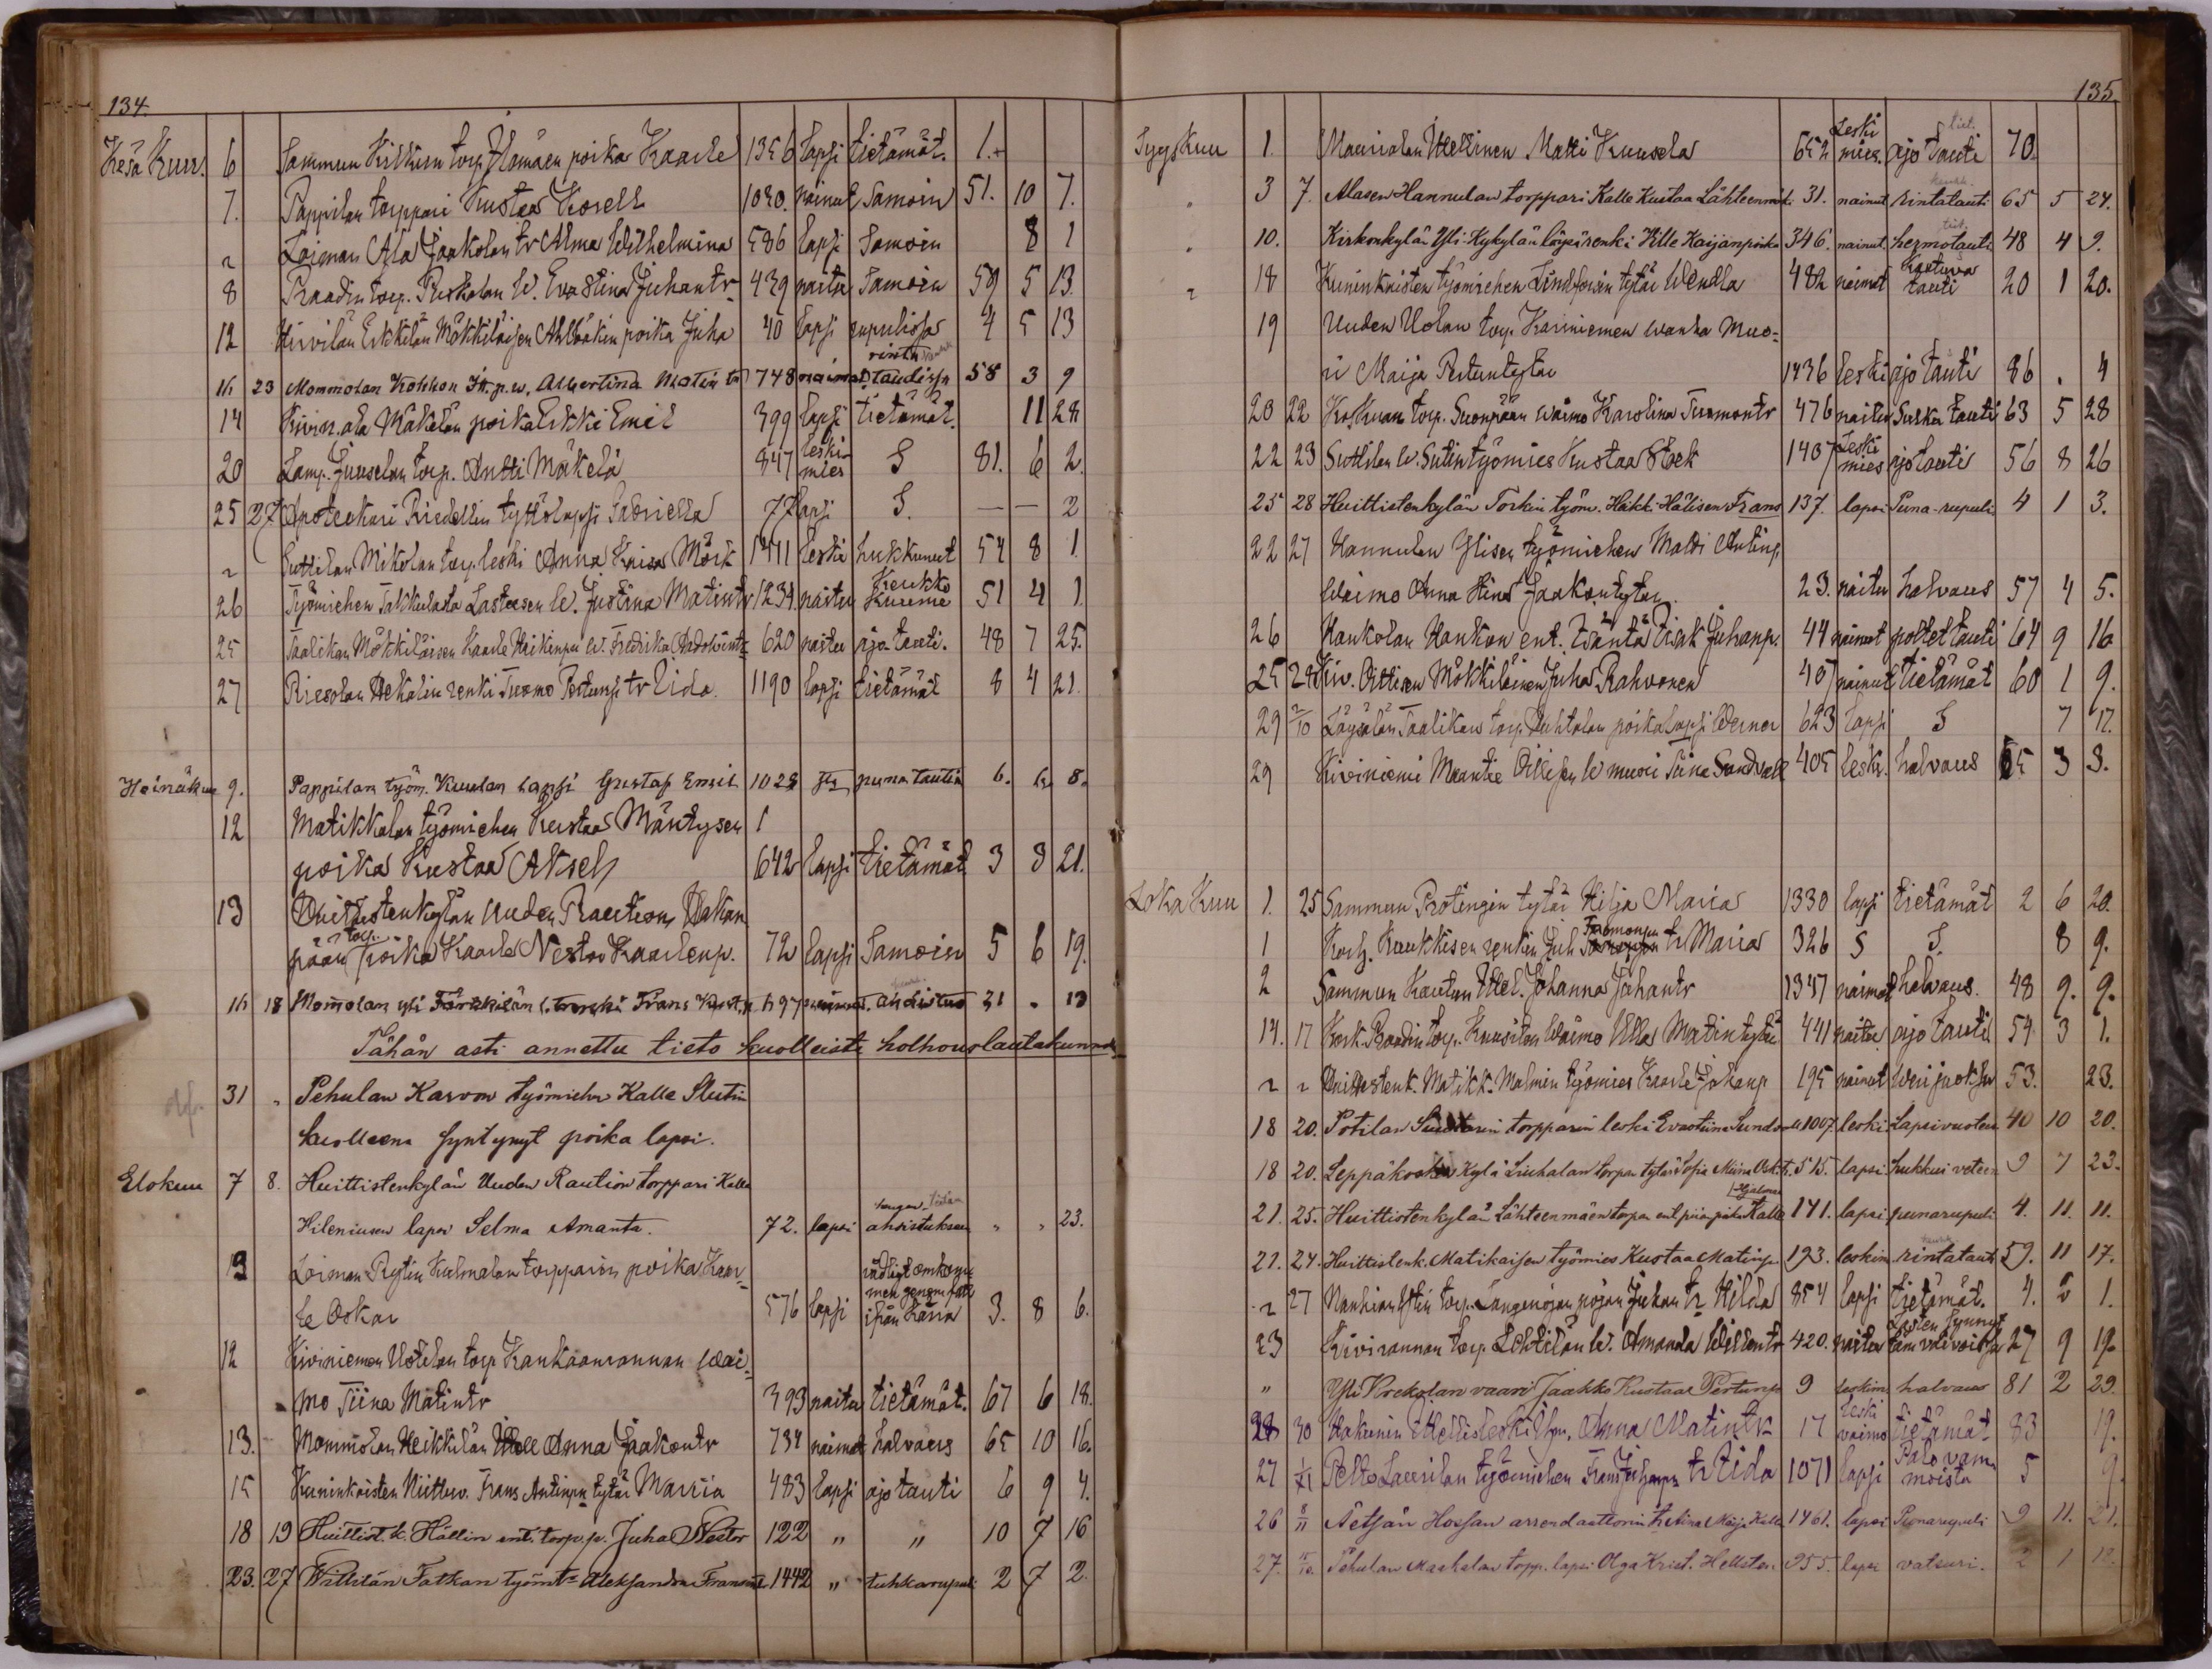 134.
Kesä Kuu. 6 Sammun Kilkun torp. Ylämäen poika Kaarle 1356 lapsi tietämät. 1.
7. Pappilan torppari Kustaa Korell 1030. nainut Samoin 51. 10 7.
" Loiman Ala Jaakolan tr Alma Wilhelmina 586 lapsi Samoin 8 1
8 Raadin torp. W. Eva Stina Juhantr 439 naitu Samoin 59 5 13
12 Hirvilän Erkkilän Mökkiläisen poika Juha 40 lapsi rupulissa 4 5 13
16 23 Mommolan Kokkon It. p. w. Albertina Matin tr 748 nainut rinta taudissa 58 3 9
14 Kivin. ala Mäkelän poika Erkki Emil 399 lapsi tietämät. 11 28
20 Lamp. Juuselan torp. Antti Mäkelä 847 leski mies S 81. 6 2.
25 27 Apotekari Riedellin tyttölapsi Gabriella 77 lapsi S. — — 2
" Suttilan Mikolan torp. leski Anna Kaisa Mörk 1411 leski hukkunut 54 8 1
26 Työmiehen Takkulasta Lastusen W. Justina Matintr 1234. naitu Keukko Kuume 51 4 1
25 Taalikan Mökkiläisen Kaarle Heikinpn W. Fredrika 620 naitu ajo tauti. 48 7 25.
27 Riesolan Hekalin renki Tuomo Pertunp tr Iida 1190 lapsi tietämät 8 4 21.
Heinäkuu 9. Pappilan työm. Kuulan lapsi Gustaf Emil 1028 puna tautia 6. 8.
12 Matikkalan työmiehen Kustaa Mäntysen
poika Kustaa Aksel 642 lapsi tietämät 3 8 21.
13 Huittistenkylän Uuden Raution Hakan
pään torp. poika Kaarle Nestor Kaarlenp. 72 lapsi Samoin 5 6 19.
16 18 Mommolan yli Färkkilän Frans 697 ahdistus 31 " 13
Tähän asti annettu tieto kuolleista holhouslautakunnalle
31 " Pehulan Karvon työmiehen Kalle Slutin
kuolleena syntynyt poika lapsi.
Elokuu 7 8. Huittistenkylän Uuden Raution torppari Kalle
Hileniusen lapsi Selma Amanta. 72. lapsi hengen ahdistukseen " " 23.
13 Loiman Rytin Kulmalan torpparin poika Kaar-
le Oskar 576 lapsi vådligt omkommen genom fall ifrån kärra 3. 8 6.
12 Kiviniemen Uotilan torp Kankaanrannan wai-
mo Tiina Matintr 393 naitu tietämät. 67 6 18.
13. Mommolan Heikkilän Itell Anna Jaakontr 734 nainut halvaus 65 10 16.
15 Kuninkoisten Niittuv. Frans Antinpn tytär Maria 483 lapsi ajo tauti 6 9 4.
18 19 Huittist. k. Hällin ent. torp. p. Juha Nestor 122 " " 10 7 16
23. 27 Willilän Fatkan Aleksandra 1442 " tuhkarupuli 2 7 2.
135.
Syys Kuu 1. Maurialan Itellinen Matti Kuusela 652 Leski mies. ajo tauti 70.
" 3 7. Alasen Hannulan torppari Kalle Kustaa Lähteenmäki 31. nainut rintatauti 65 5 24.
" 10. Kirkonkylän Yli-Kykylän renki Kalle Kaijanpoika 346. nainut hermotauti 48 4 9.
" 18 Kuninkoisten työmiehen Lindforsin tytär Wendla 482 naimat Kaatuva tauti 20 1 20.
19 Uuden Uolan torp. Kariniemen wanha Muo-
ri Maija Pertuntytär 1436 leski ajo tauti 86 . 4
20 22 Koskuan torp. Suonpään waimo Karolina Tuomontr 476 naitu Surku tauti 63 5 28
22 23 Suttilan W. Sutin työmies Kustaa Stek 1407 Leski mies ajo tauti 56 8 26
25 28 Huittistenkylän Torkin työm. Heikk. Hälisen Frans 137. lapsi Puna-rupuli 4 1 3.
22 27 Hannulan Ylisen työmiehen Matti Antinp.
Waimo Anna Hinr Jaakontytär 23. naitu halvaus 57 4 5.
26 Hankolan Hankon ent. Isäntä Iisak Juhanp. 44 nainut polttet tauti 64 9 16
25 28 Kiv. Ottisen Mökkiläinen Juha Rahvonen 407 nainut tietämät 60 1 9.
29 2/10 Löysälän Taalikan torp. Suhtalan poikalapsi Werner 623 lapsi S 7 17.
29 Kiviniemi Maantie W muori Tiina Sandvall 405 leski. halvaus 65 3 3.
Loka Kuu 1. 25 Sammun Protingin tytär Hilja Maria 1330 lapsi tietämät 2 6 20.
1 Kork. Kaukkisen renkin Juh Salomonpn tr Maria 326 S S. 8 9.
2 Sammun Kautun Itel. Johanna Johantr 1347 naimat halvaus. 48 9. 9.
14. 17 Kork. Raadin torp. Kuusiton waimo Ulla Matintytär 441 naitu ajo tauti 54 3 1.
" " Huittistenk. Matikk. Malmin työmies Kaarle Johanp 195 nainut werijuoksu 53. 23.
18 20. Potilan Suutarin torpparin leski Evastiina Sund 1007. leski. Lapsivuoteen 40 10 20.
18 20. Leppäkosken Kylä Liuhalan torpan tytär Sofia Miina 515. lapsi hukkui veteen 9 7 23.
21. 25. Huittistenkylän Lähteenmäen torpan ent piian poika Kalle Hjalmar 141. lapsi punarupuli 4. 11. 11.
21. 24. Huittistenk. Matikaisen työmies Kustaa Matinp. 193. leskim rintatauti 59. 11 17.
" 27 torp. Langenojan pojan Juhan tr Hilda 854 lapsi tietämät. 4. 1.
23 Kivirannan torp. Lehtilän W. Amanda Willentr 420. naitu Lasten synnyttämävaivoissa 27 9 19.
" Yli Krekolan vaari Jaakko Kustaa Pertunp 9 leskim halvaus 81 2 29.
28 30 Hakunin Itellisleski Anna Matintr 17 leski vaimo tietämät 83 19.
27 1/11 Pelto Laurilan työmiehen Frans Juhanpn tr Iida 1071 lapsi Palovammoista 5 9.
26 8/11 Äetsän Hossan arrendaattorin tr Aina Maija Kalle 1461. lapsi Punarupuli 9 11. 21.
27. Pehulan Maahalan topp. lapsi Olga Krist. Hellsten 955. lapsi vatsuri. 2 1 12.